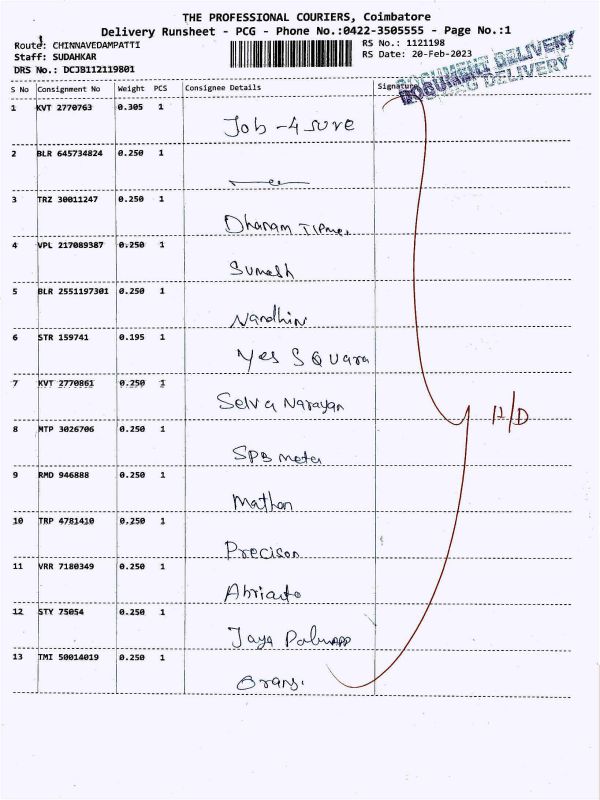 THE PROFESSIONAL COURIERS, Coimbatore
Delivery Runsheet - PCG - Phone No.:0422-3505555 - Page No.:1
Route: CHINNAVEDAMPATTI
RS No.: 1121198
Staff: SUDAHKAR
RS Date: 20-Feb-2023
DRS No.: DCJB112119801
DOCUMENT DELIVERY
S No Consignment No Weight PCS Consignee Details Signature
1 KVT 2770763 0.305 1
Job - 4 sure
2 BLR 645734824 0.250 1
3 TRZ 30011247 0.250 1
Dhanam
4 VPL 217089387 0.250 1
Sumesh
5 BLR 2551197301 0.250 1
Nandhin
6 STR 159741 0.195 1
Yes SQuara
7 KVT 2770861 0.250 1
Selva Narayan
8 MTP 3026706 0.250 1
SPB meta
9 RMD 946888 0.250 1
Mathan
10 TRP 4781410 0.250 1
Precison
11 VRR 7180349 0.250 1
12 STY 75054 0.250 1
Jaya
13 TMI 50014019 0.250 1
H/D